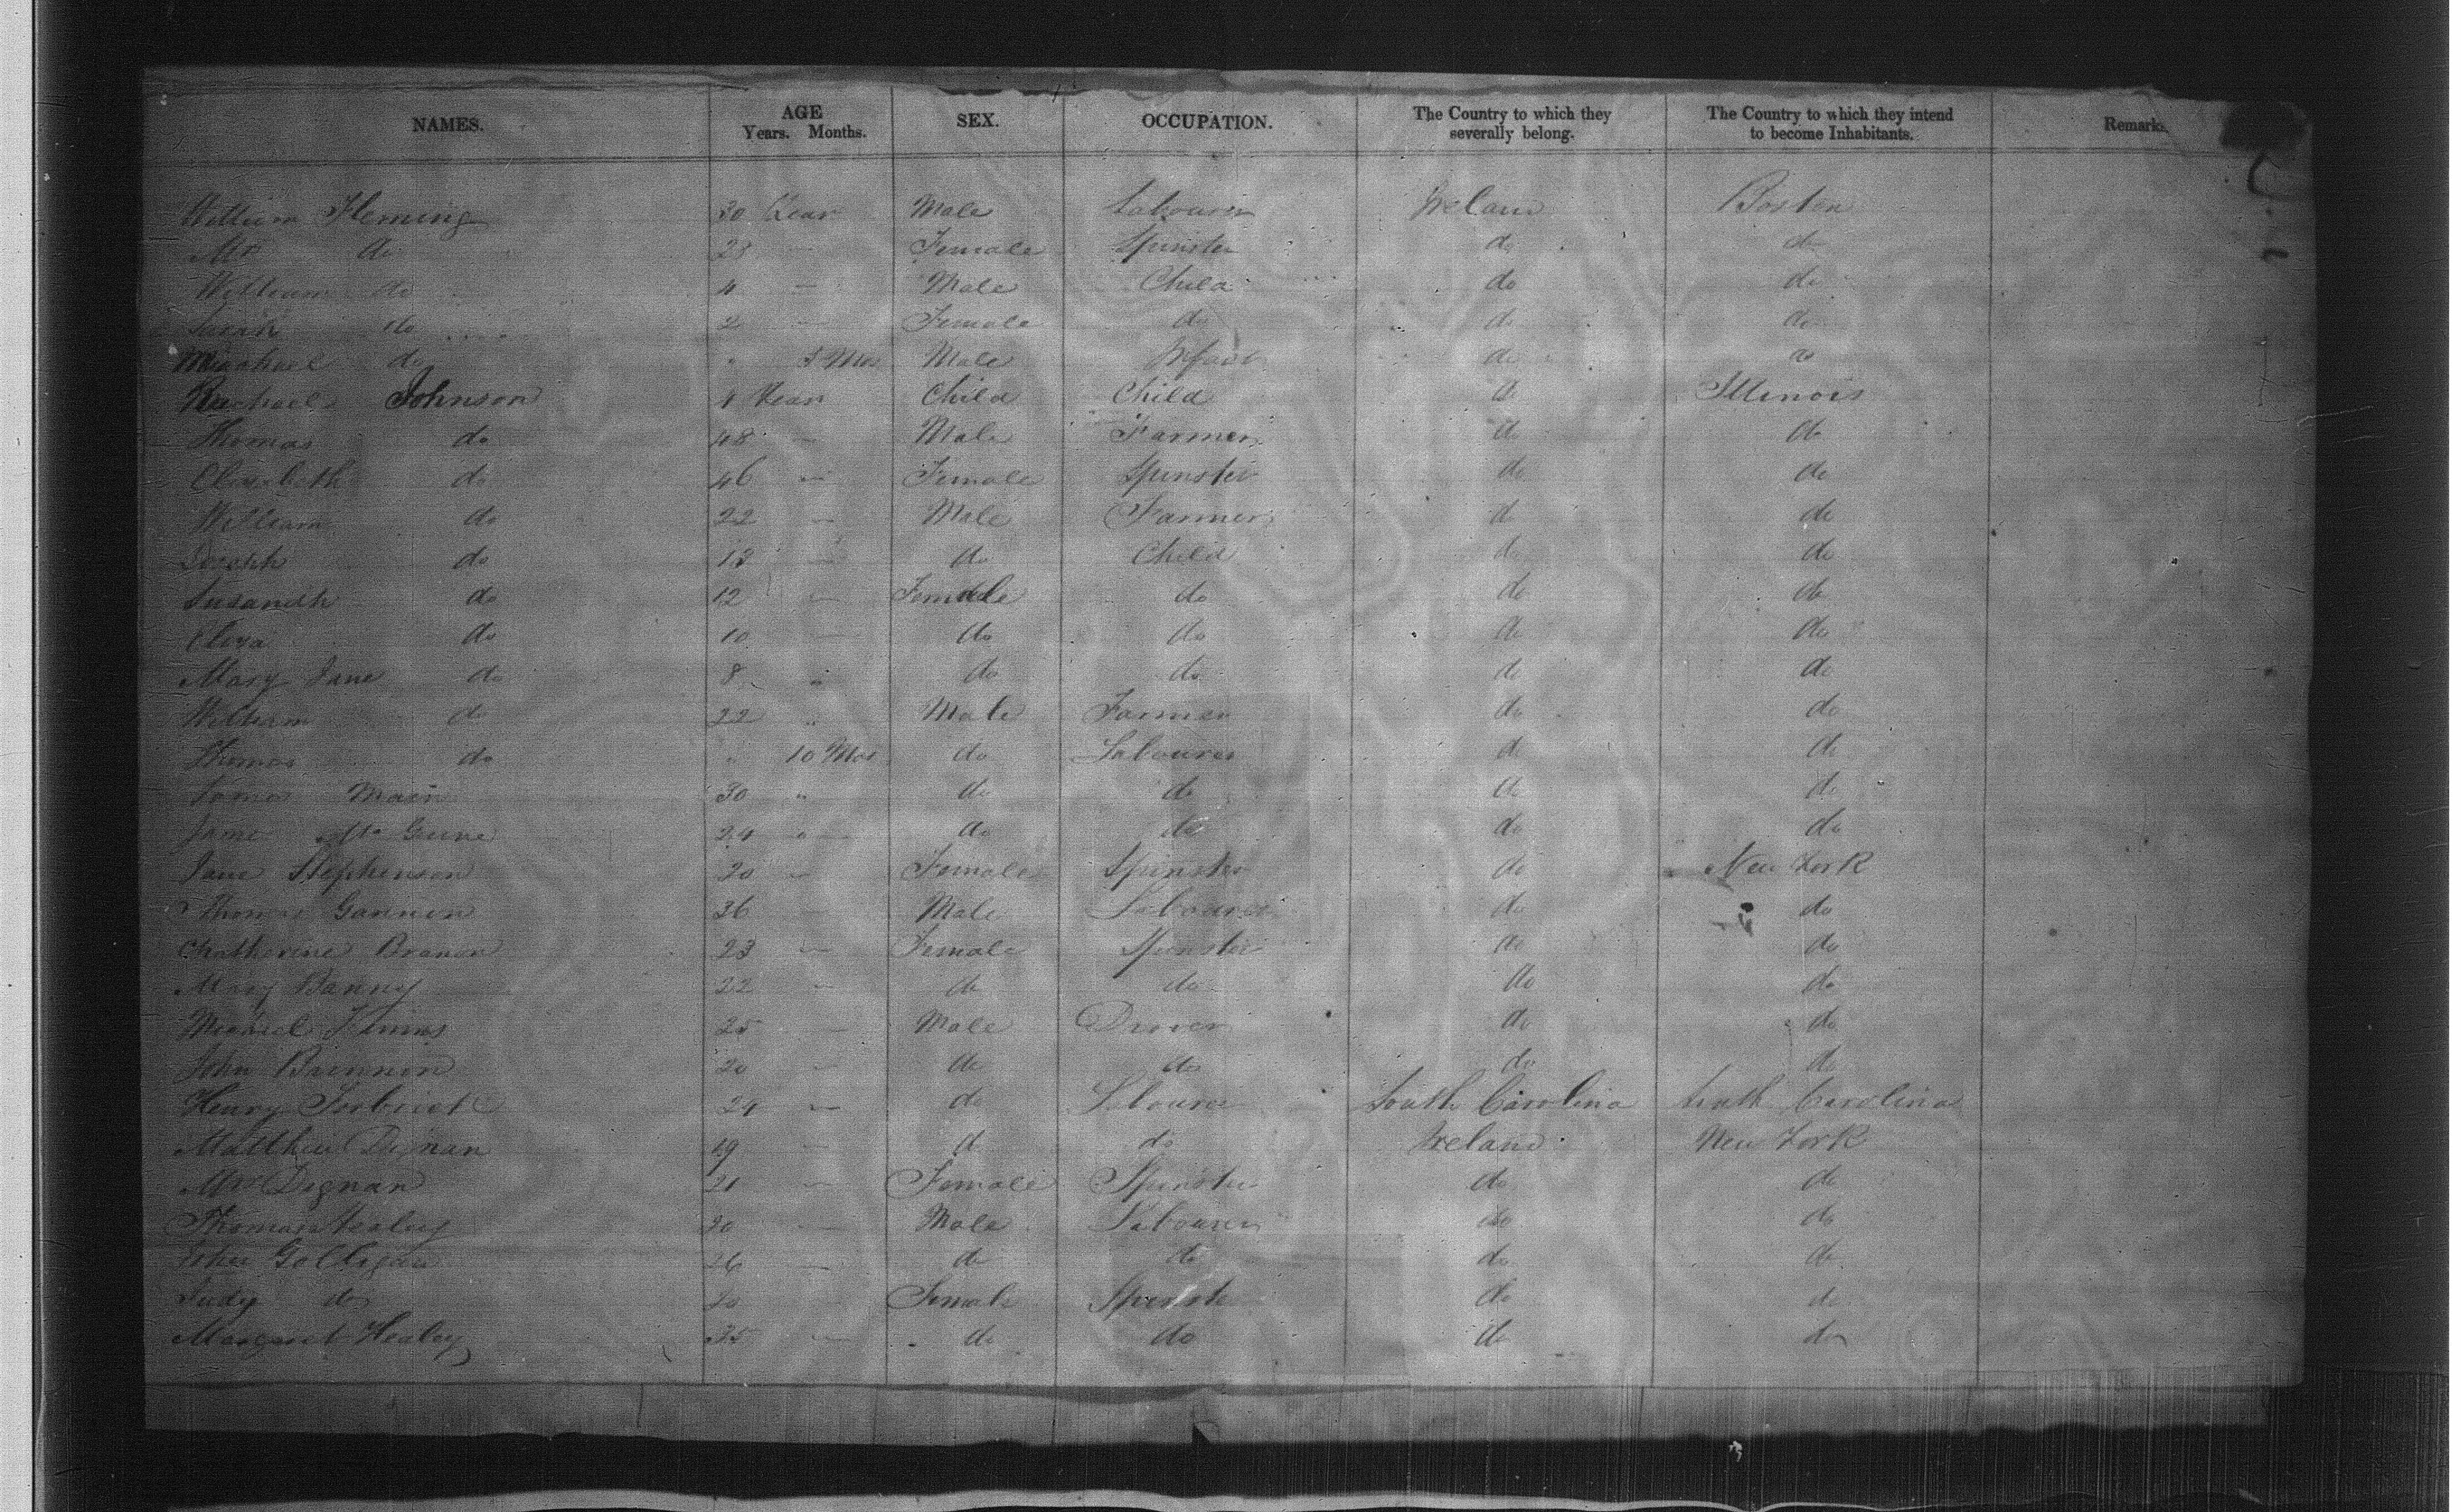 NAMES. AGE Years. Months. SEX. OCCUPATION. The Country to which they severally belong. The Country to which they intend to become Inhabitants. Remarks.
William Fleming 30 Year Male Labourer Ireland Boston
Mrs do 23 — Female Spinster do do
William do 4 — Male Child do do
Sarah do 2 — Female do do do
Meachael do " 5 Mos Male Infant do do
Rachael Johnson 4 Year Child Child do Illinois
Thomas do 48 — Male Farmer do do
Elizabeth do 46 — Female Spinster do do
William do 22 — Male Farmer do do
Joseph do 13 — do Child do do
Susanah do 12 — Female do do do
Eliza do 10 — do do do do
Mary Jane do 8 " do do do do
William do 22 " Male Farmer do do
Thomas do " 10 Mos do Labourer do do
Main 30 " do do do do
Mc 24 " — do do do do
Jane Stephenson 20 — Female Spinster do New York
Thomas Gannon 36 — Male Labourer do do
Chatherine Branon 23 — Female Spinster do do
Mary Banny 22 — do do do do
Michael 25 — Male Drover do do
John Brennon 20 — do do do do
Henry 24 — do Labourer South Carolina South Carolina
Matthew Dignan 19 — do do Ireland New York
Mrs Dignan 21 — Female Spinster do do
Thomas Healey 30 — Male Labourer do do
Golligan 26 — do do do do
Judy do 20 — Female Spinste do do
Margaret Healey 35 — do do do do